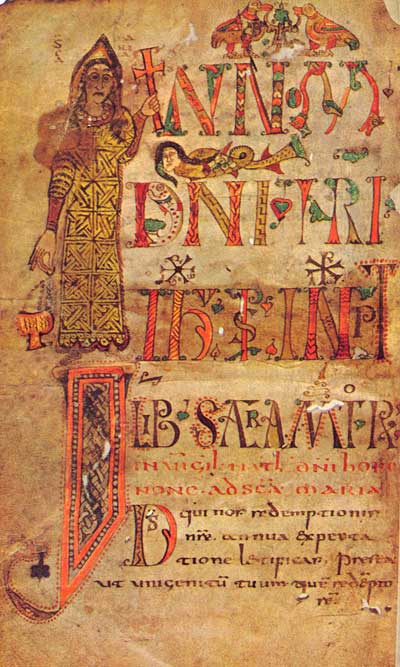 INNOM
DNI NRI
IHY INPT
LIB SACRAM
IN UIGIL NATL DNI HORE
NONE · AD SCA MARIA
DS qui nos redemptionis
nre annua expecta
tione letificas presta
ut unigenitu tuum que redempto
re